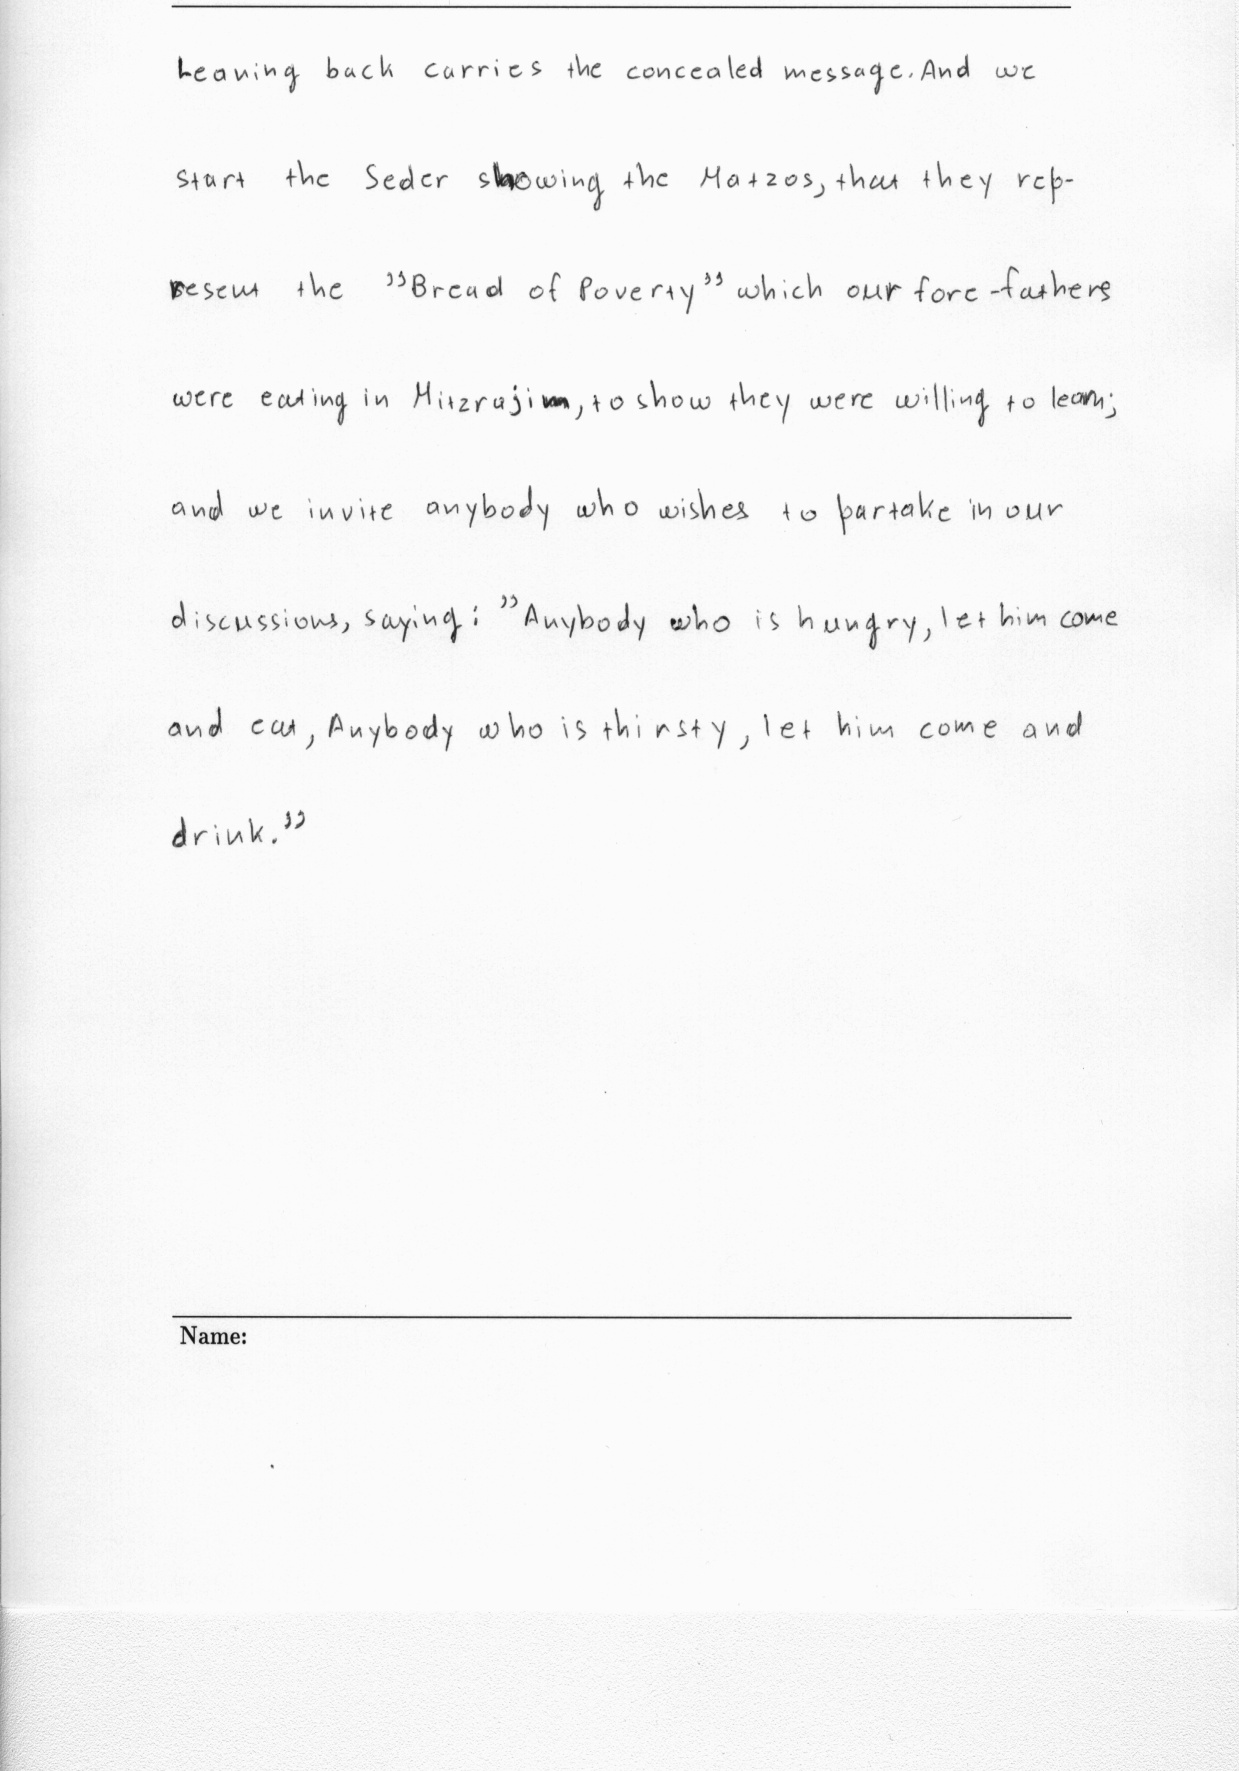 Leaning back carries the concealed message. And we
start the Seder showing the Matzos, that they rep-
resent the "Bread of Poverty" which our fore-fathers
were eating in Mitzrajim, to show they were willing to learn;
and we invite anybody who wishes to partake in our
discussions, saying: "Anybody who is hungry, let him come
and eat, Anybody who is thirsty, let him come and
drink."
Name: